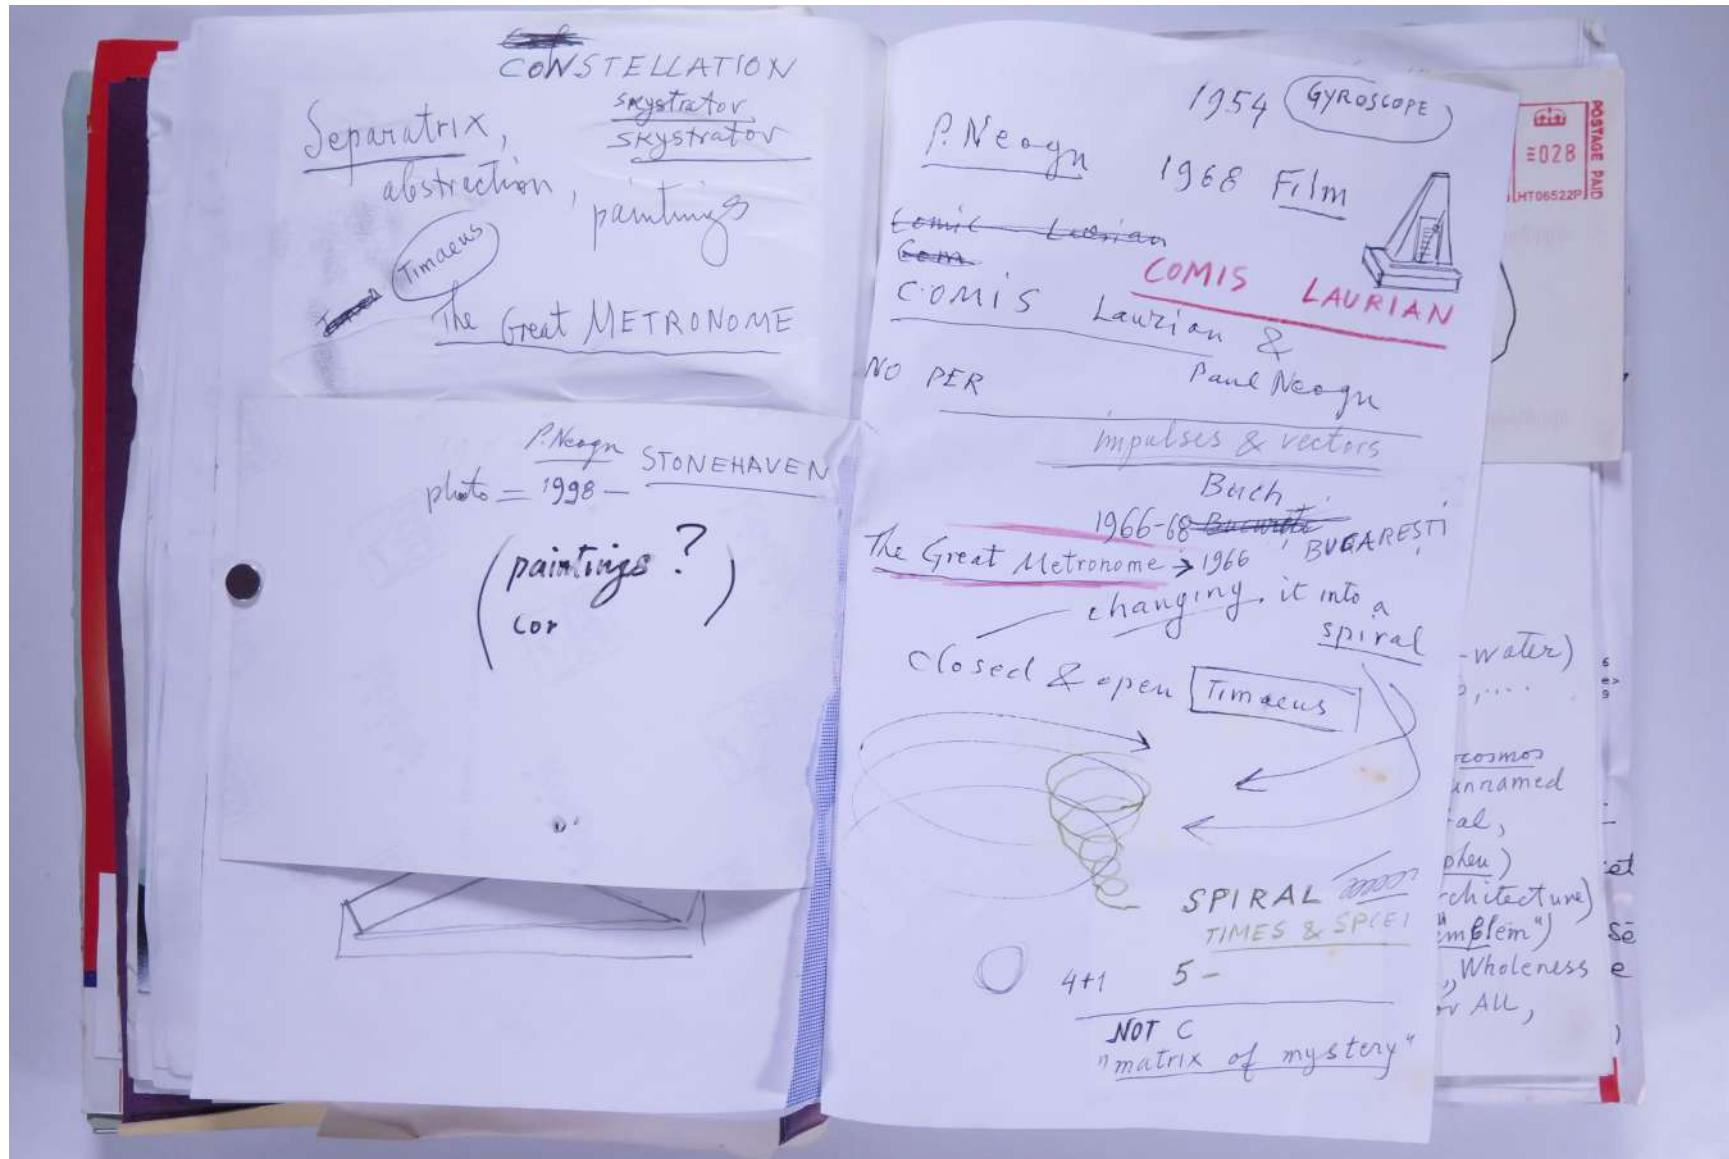 CONSTELLATION
skystrator
Separatrix, skystrator
abstraction, paintings
Timaeus
The Great METRONOME
P. Neagu
photo = 1998 - STONEHAVEN
(paintings ?
cor )
1954 GYROSCOPE
P. Neagu 1968 Film
Comic Laurian
Com
COMIS LAURIAN
COMIS Laurian &
NO PER Paul Neagu
impulses & vectors
Buch
1966-68 BUCAREȘTI
The Great Metronome → 1966
changing it into a
spiral
closed & open Timaeus
SPIRAL
TIMES & SPCEI
4+1 5 -
NOT C
"matrix of mystery"
POSTAGE PAID
≡028
HT06522P
-water)
cosmos
unnamed
al,
phen)
rchitecture)
emblem")
, Wholeness
or ALL,
et
Se
e